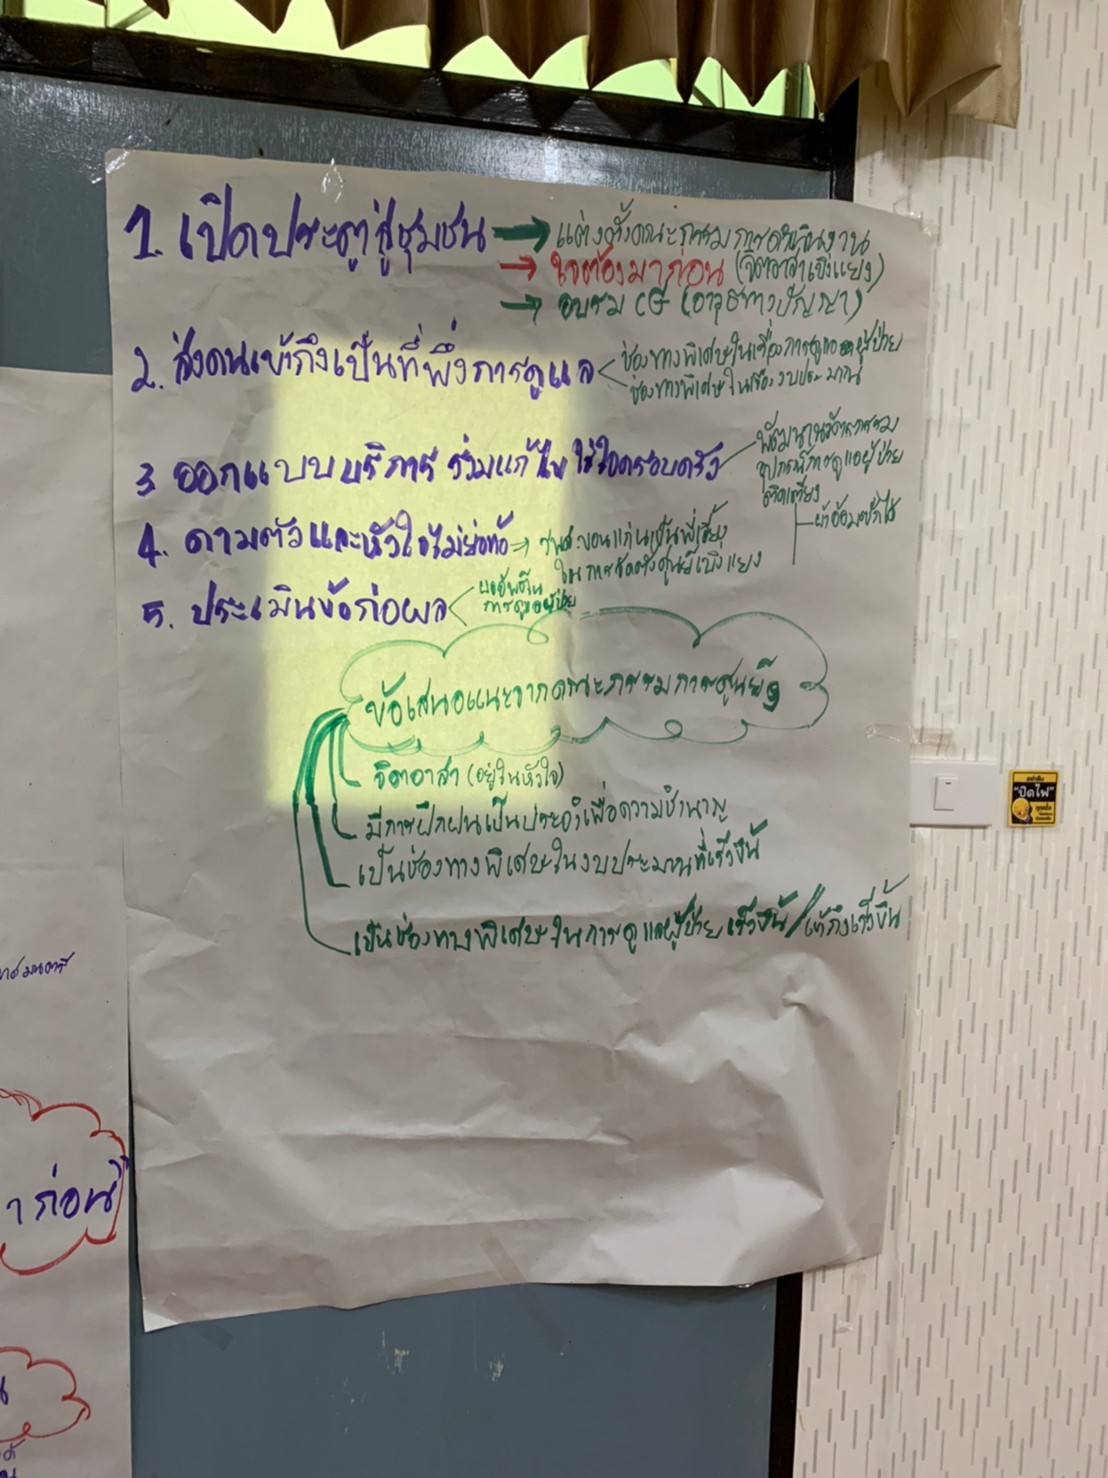 1. เปิดประตูสู่ชุมชน → แต่งตั้งคณะกรรมการดำเนินงาน
→ ใจต้องมาก่อน (จิตอาสาเชิงแยง)
→ อบรม CG (อาวุธทางปัญญา)
2. ส่งคนเข้าถึงเป็นที่พึ่งการดูแล
ช่องทางพิเศษในเรื่องการดูแลผู้ป่วย
ช่องทางพิเศษในเรื่องงบประมาณ
3 ออกแบบบริการ ร่วมแก้ไข ใส่ใจครอบครัว
พัฒนานวัตกรรม
อุปกรณ์การดูแลผู้ป่วย
ติดเตียง
ผ้าอ้อมซักได้
4. ดามตัวและหัวใจไม่ย่อท้อ → ขอนแก่นเป็นพี่เลี้ยง
ในการจัดตั้งศูนย์เบิงแยง
5. ประเมินข้อก่อผล
ผลลัพธ์ใน
การดูแลผู้ป่วย
ข้อเสนอแนะจากคณะกรรมการศูนย์ฯ
จิตอาสา (อยู่ในหัวใจ)
มีการฝึกฝนเป็นประจำเพื่อความชำนาญ
เป็นช่องทางพิเศษในงบประมานที่เร็วขึ้น
เป็นช่องทางพิเศษในการดูแลผู้ป่วยเร็วขึ้น/เข้าถึงเร็วขึ้น
"ปิดไฟ"
มนตรี
าก่อน